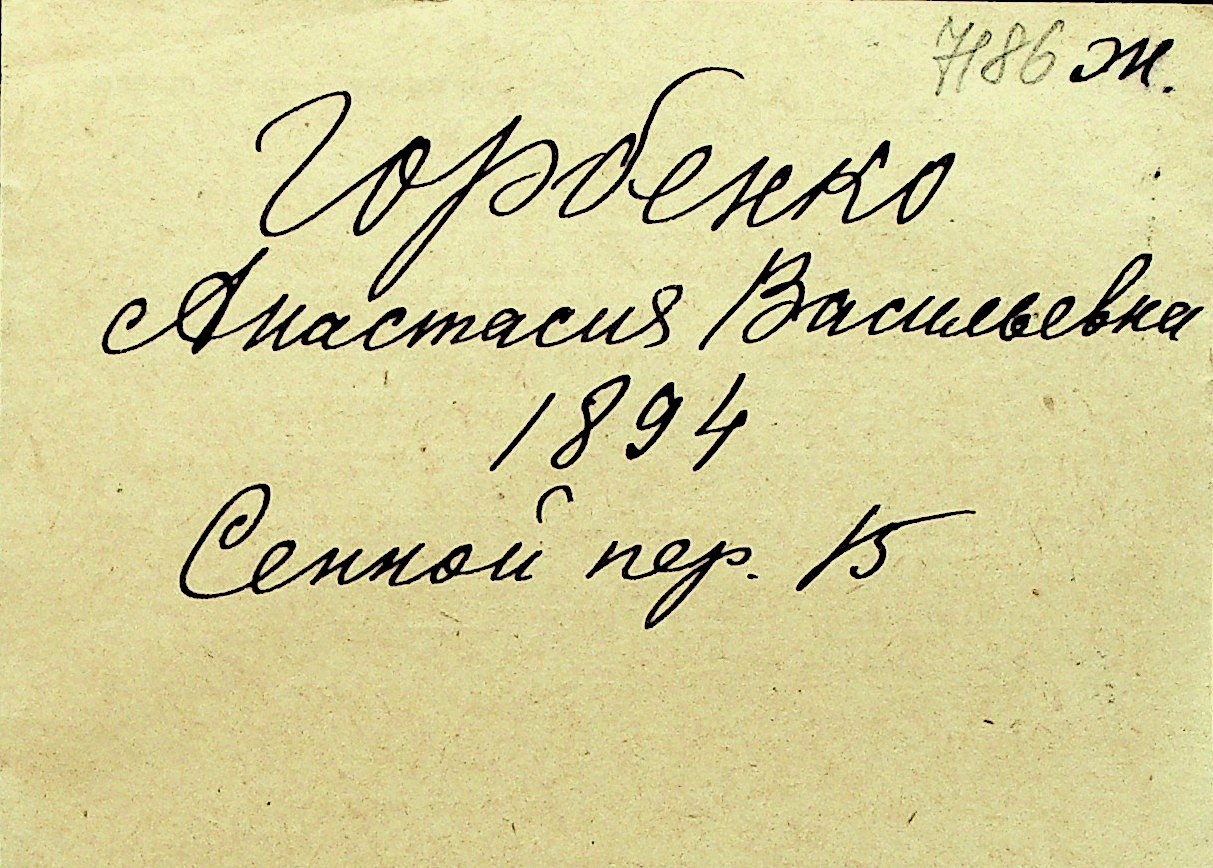 7186 ж.
Горбенко
Анастасия Васильевна
1894
Сенной пер. 15